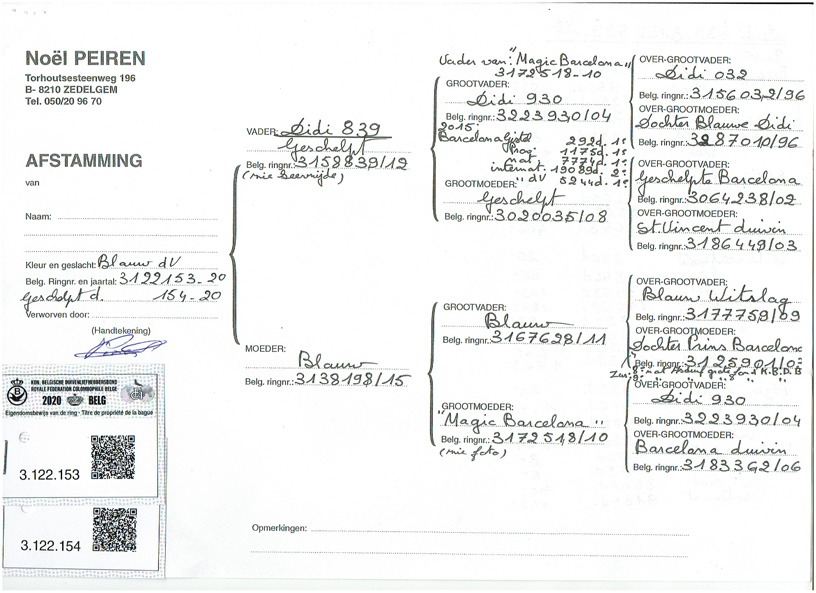 Noël PEIREN
Torhoutsesteenweg 196
B- 8210 ZEDELGEM
Tel. 050/20 96 70
AFSTAMMING
van
Naam:
Kleur en geslacht: Blauw dV
Belg. Ringnr. en jaartal: 3122153-20
Geschelpt d. 154-20
Verworven door:
(Handtekening)
KON. BELGISCHE DUIVENLIEFHEBBERSBOND
ROYALE FEDERATION COLOMBOPHILE BELGE
2020 BELG
Eigendomsbewijs van de ring - Titre de propriété de la bague
3.122.153
3.122.154
VADER: Didi 839
Geschelpt
Belg. ringnr.: 3158839/12
MOEDER:
Blauw
Belg. ringnr.: 3138198/15
Vader van: "Magic Barcelona"
3172518-10
GROOTVADER:
Didi 930
Belg. ringnr.: 3223930/04
2015:
Barcelona Gistel 292d. 1e
Prov 1175d. 1e
nat 7774d. 1e
internat. 19089d. 2e
" dV 5244d. 1e
GROOTMOEDER:
Geschelpt
Belg. ringnr.: 3020035/08
GROOTVADER:
Blauw
Belg. ringnr.: 3167628/11
GROOTMOEDER:
"Magic Barcelona"
Belg. ringnr.: 3172518/10
(zie foto)
OVER-GROOTVADER:
Didi 032
Belg. ringnr.: 3156032/96
OVER-GROOTMOEDER:
Dochter Blauwe Didi
Belg. ringnr.: 3287010/96
OVER-GROOTVADER:
Geschelpte Barcelona
Belg. ringnr.: 3064238/02
OVER-GROOTMOEDER:
St. Vincent duivin
Belg. ringnr.: 3186449/03
OVER-GROOTVADER:
Blauw Witslag
Belg. ringnr.: 3177759/09
OVER-GROOTMOEDER:
Dochter Prins Barcelona
Belg. ringnr.: 3125901/0
K.B.D.B
OVER-GROOTVADER:
Didi 930
Belg. ringnr.: 3223930/04
OVER-GROOTMOEDER:
Barcelona duivin
Belg. ringnr.: 3183362/06
Opmerkingen: